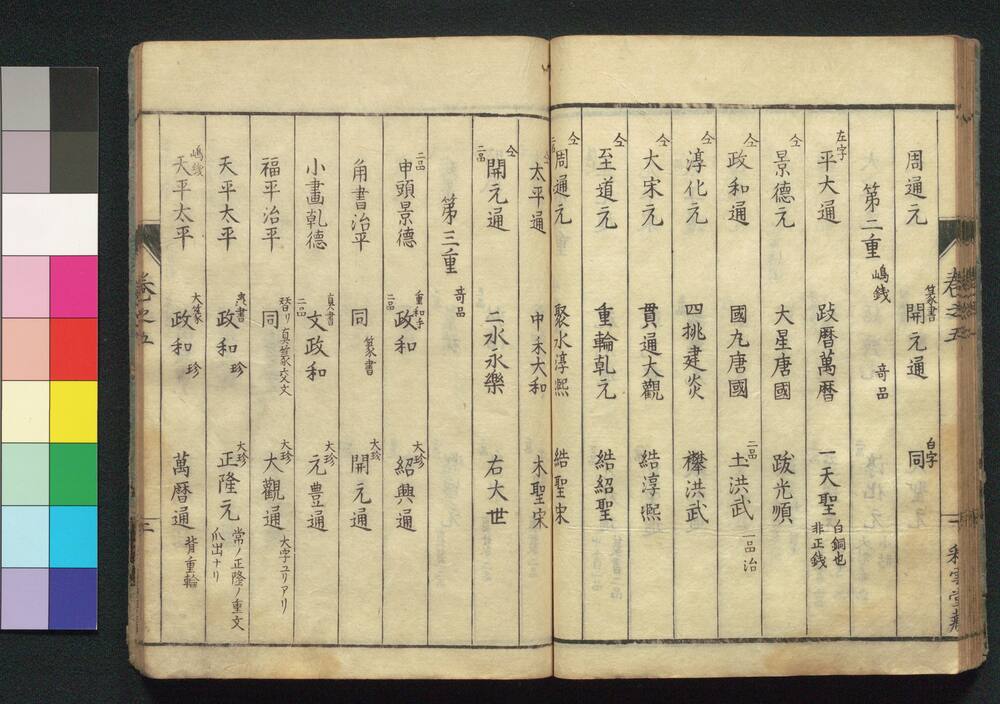 周通元 篆書 開元通 白字 同
第二重 嶋銭 奇品
左字 平大通 跂暦萬暦 一天聖 白銅也 非正銭
仝 景德元 大星唐國 跋光順
仝 政和通 國九唐國 二品 土洪武 一品治
仝 淳化元 四挑建炎 欅洪武
仝 大宋元 貫通大觀 結淳熈
仝 至道元 重輪乾元 結紹聖
仝 周通元 聚水淳熈 結聖宋
太平通 中禾大和 木聖宋
仝 二品 開元通 二水永樂 右大世
第三重 奇品
二品 申頭景德 重和手 二品 政和 大珍 紹興通
角書治平 同 篆書 大珍 開元通
小畫乾德 真書 二品 文政和 大珍 元豊通
福平治平 同 真篆交文 大珍 大觀通 大字ユリアリ
天平太平 真書 政和 珍 大珍 正隆元 常ノ正隆ノ重文 爪出ナリ
嶋銭 天平太平 大篆 政和 珍 萬暦通 背重輪
卷之五
卷之五